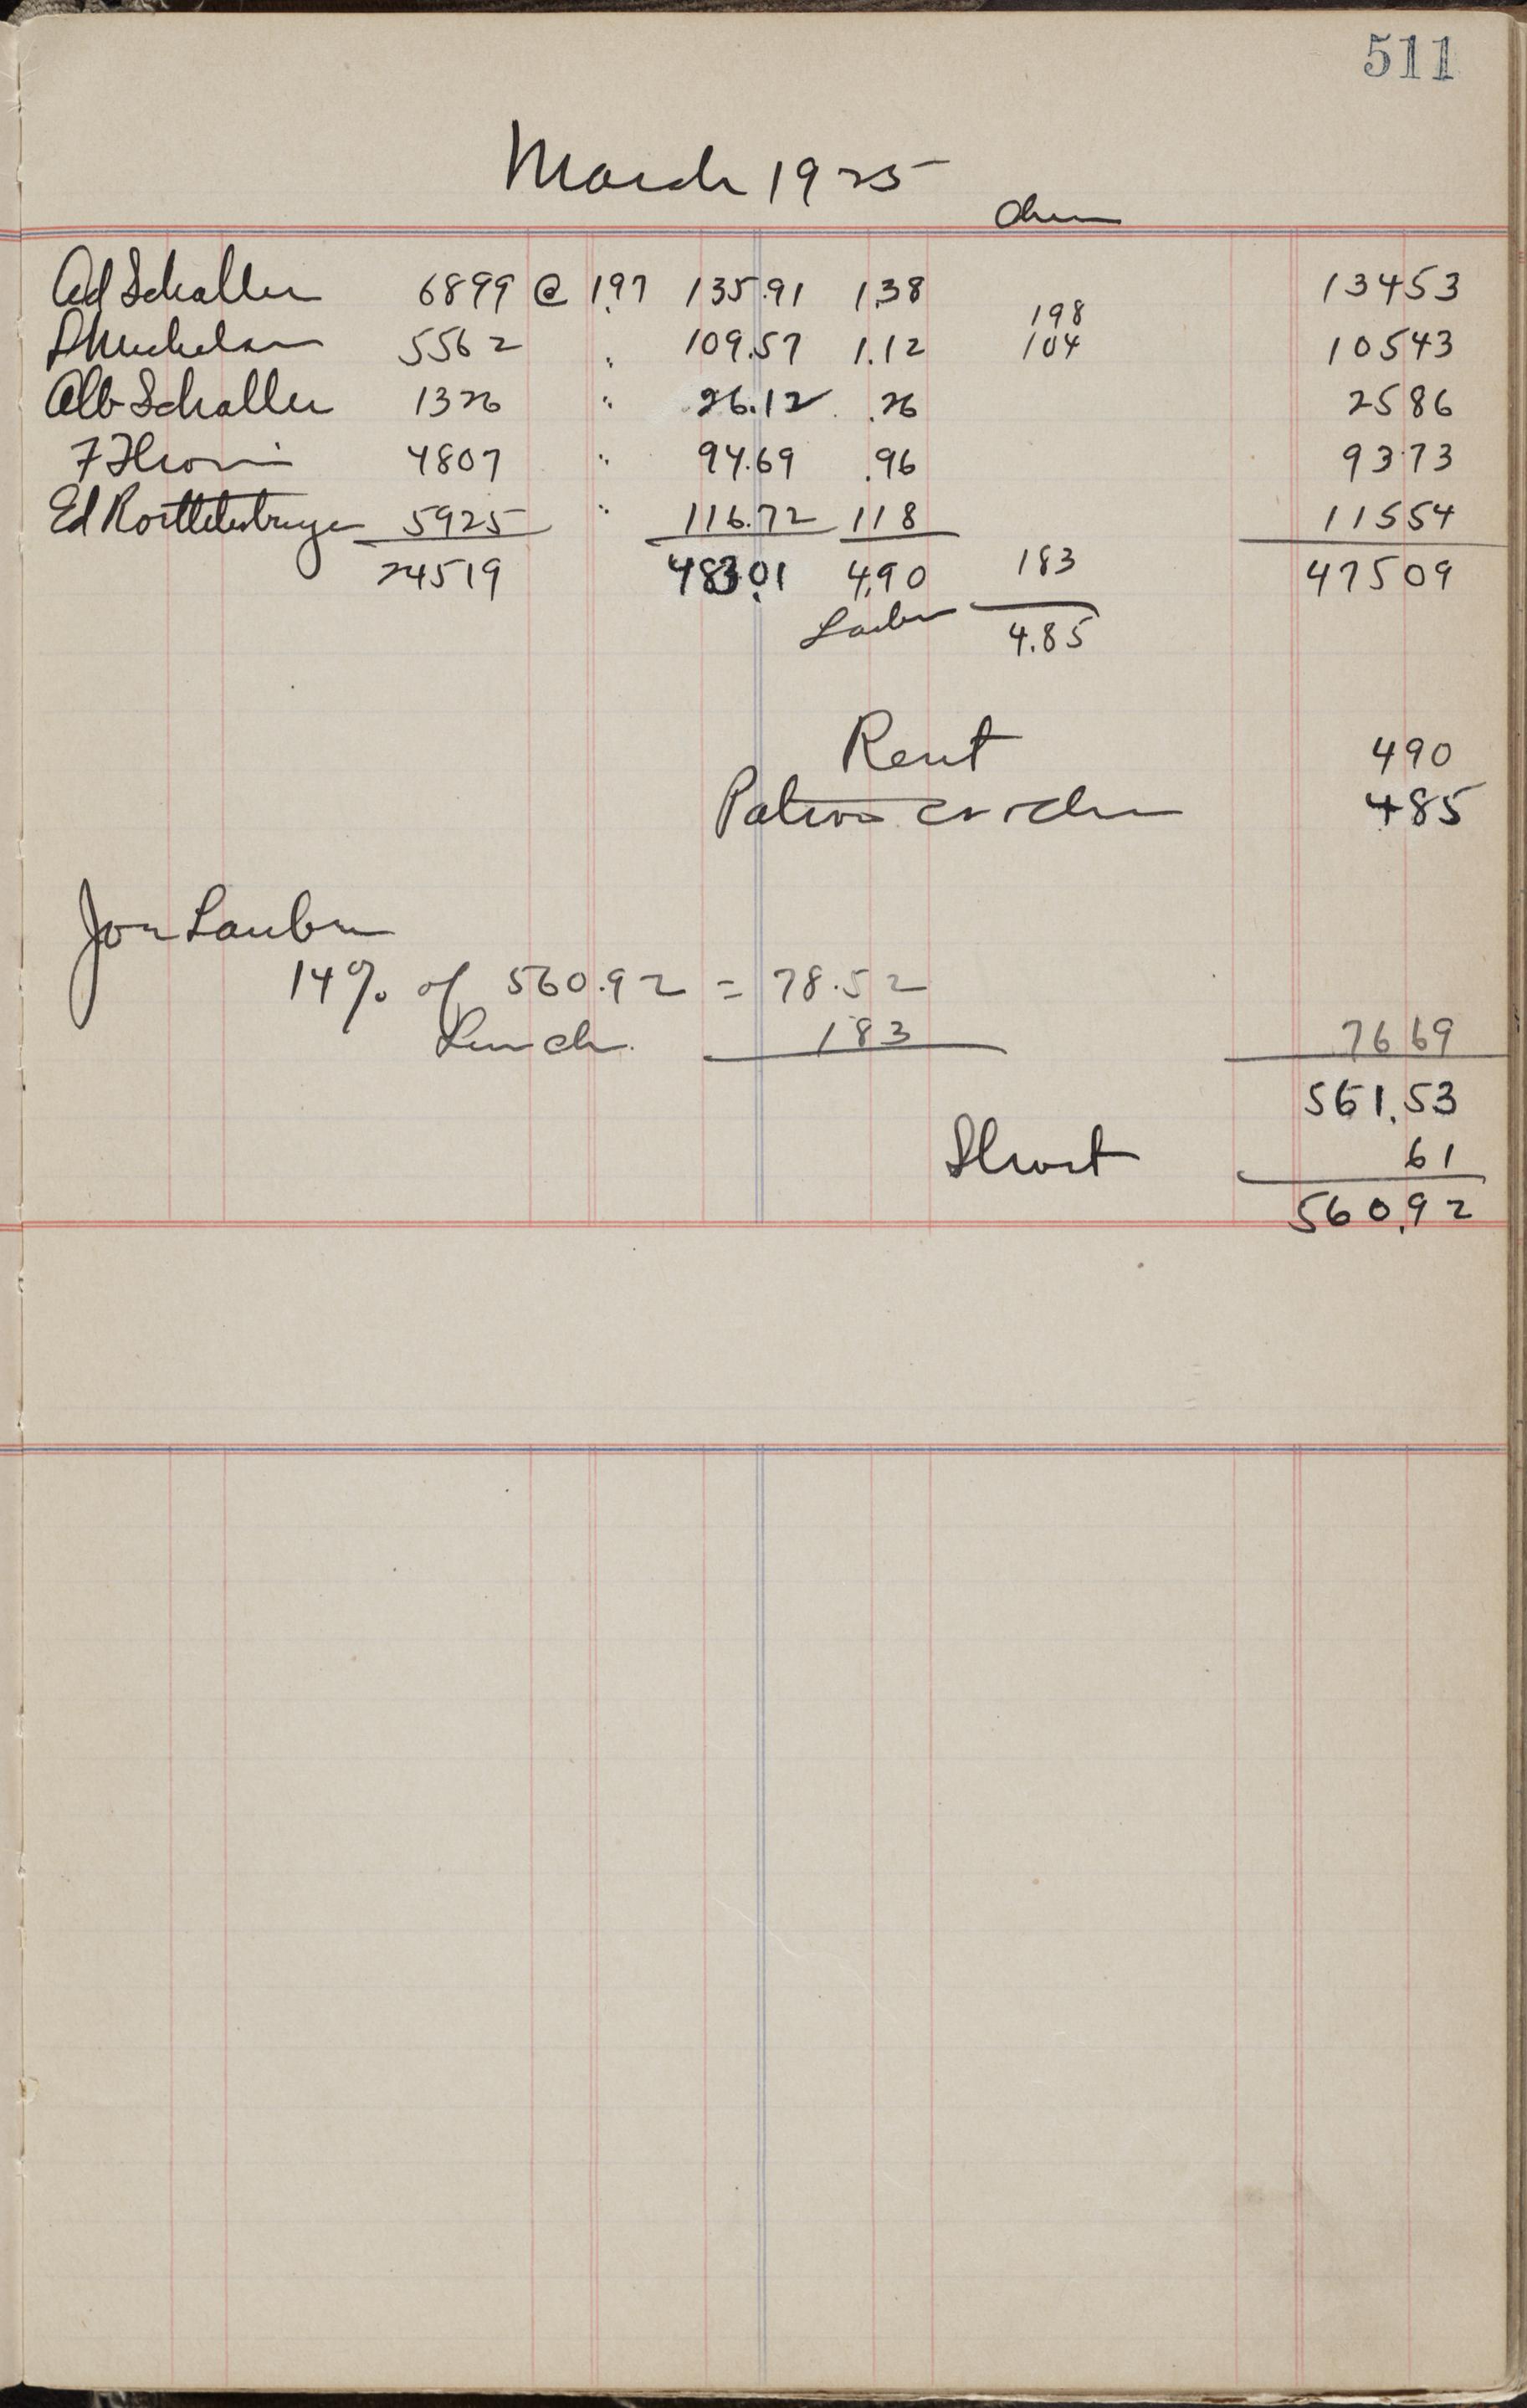 511
March 1925
Ad Schaller 6899 @ 1.97 135.91 1.38 13453
198
5562 " 109.57 1.12 104 10543
Alb Schaller 1326 " 26.12 .26 2586
4807 " 94.69 .96 9373
Ed 5925 " 116.72 118 11554
24519 483.01 4.90 183 47509
4.85
Rent 490
485
14% of 560.92 = 78.52
Lunch. 183 7669
561.53
Short 61
560.92